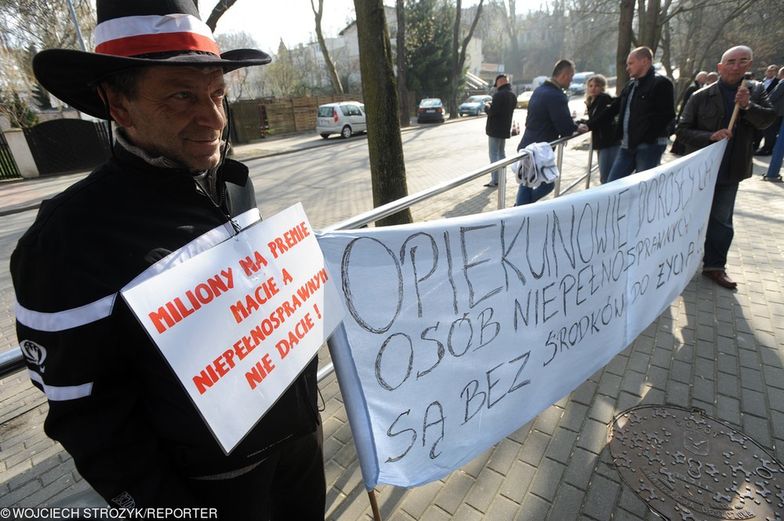 MILIONY NA PREMIE
MACIE A
NIEPEŁNOSPRAWNYM
NIE DACIE!
OPIEKUNOWIE DOROSŁYCH
OSÓB NIEPEŁNOSPRAWNYCH
SĄ BEZ ŚRODKÓW DO ŻYCIA...!!
©WOJCIECH STROZYK/REPORTER